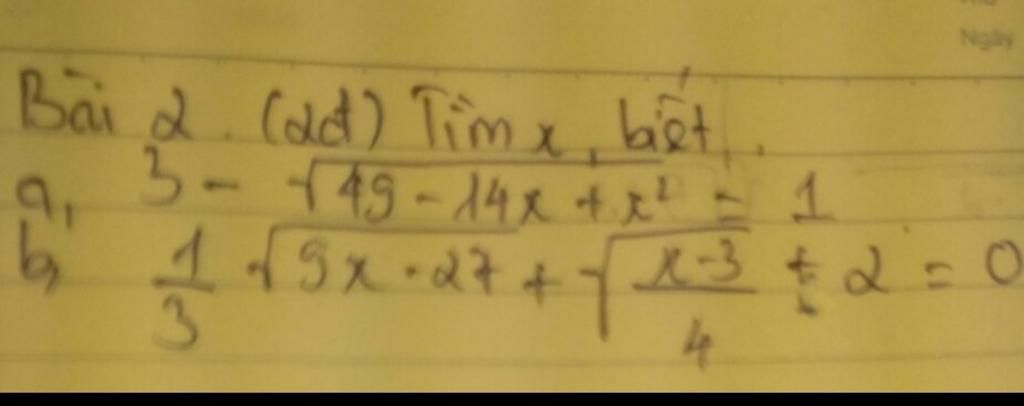 Ngày
Bài 2. (2đ) Tìm x, biết.
a, 3 - √(49 - 14x + x²) = 1
b, 1/3 √(9x - 27) + √((x-3)/4) + 2 = 0